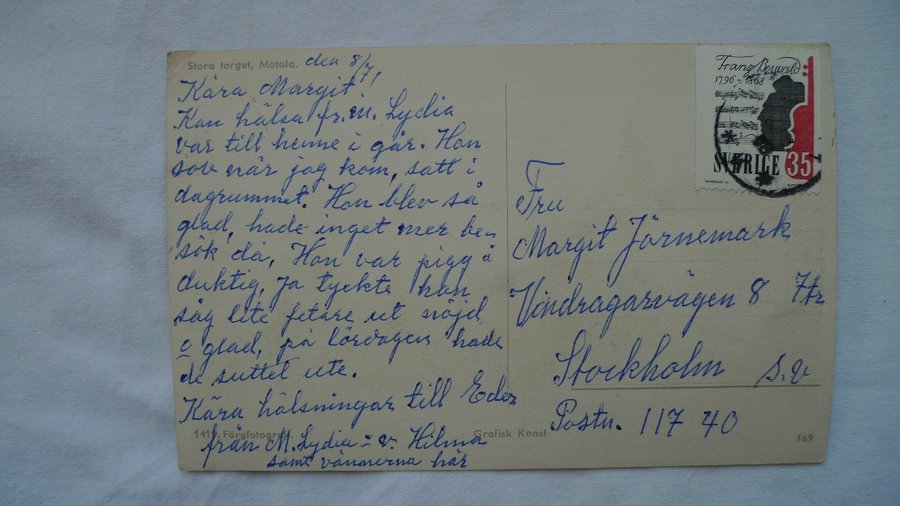 Stora torget, Motala. den 8/7
Kära Margit!
Kan hälsa fr. M. Lydia
var till henne i går. Hon
sov när jag kom, satt i
dagrummet. Hon blev så
glad, hade inget mer be-
sök då, Hon var pigg å
duktig. Ja tyckte hon
såg lite fetare ut nöjd
o glad, på lördagen hade
de suttet ute.
Kära hälsningar till Eder
från M. Lydia o v. Hilma
samt vännerna här
1419. Färgfotografi
Grafisk Konst
169
Franz Berwald
1796-1868
SVERIGE 35
Fru
Margit Järnemark
Vindragarvägen 8 7tr
Stockholm S.V
Postn. 117 40